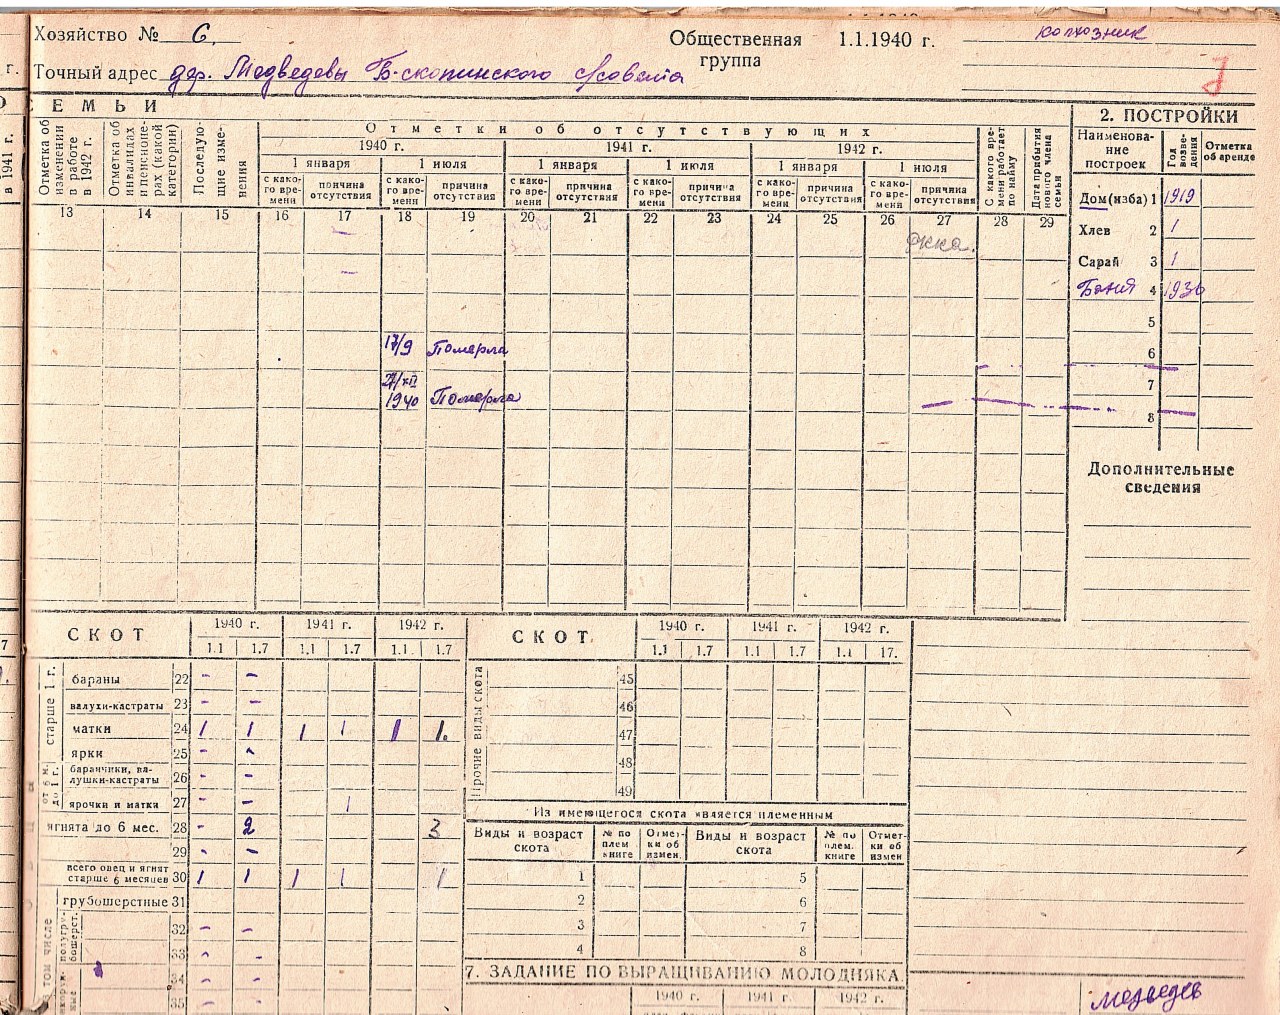 Хозяйство № 6. Общественная группа 1.1.1940 г. колхозник
Точный адрес дер. Медведевы Б-скопинского с/совета
СЕМЬИ
2. ПОСТРОЙКИ
Отметка об изменении в работе в 1942 г.
Отметка об инвалидах и пенсионерах (какой категории)
Последующие изменения
Отметки об отсутствующих
1940 г. 1941 г. 1942 г.
1 января 1 июля 1 января 1 июля 1 января 1 июля
с какого времени причина отсутствия с какого времени причина отсутствия с какого времени причина отсутствия с какого времени причина отсутствия с какого времени причина отсутствия с какого времени причина отсутствия
С какого времени работает по найму
Дата прибытия нового члена семьи
Наименование построек Год возведения Отметка об аренде
13 14 15 16 17 18 19 20 21 22 23 24 25 26 27 28 29
Дом (изба) 1 1919
Хлев 2 1
Сарай 3 1
Баня 4 1936
5
17/9 Померла
6
27/XII 1940 Померла
7
8
Дополнительные сведения
СКОТ 1940 г. 1941 г. 1942 г.
1.1 1.7 1.1 1.7 1.1 1.7
старше 1 г.
бараны 22 - -
валухи-кастраты 23 - -
матки 24 1 1 1 1 1 1.
ярки 25 - -
от 6 м. до 1 г.
баранчики, валушки-кастраты 26 - -
ярочки и матки 27 - - 1
ягнята до 6 мес. 28 - 2 3
29 - -
всего овец и ягнят старше 6 месяцев 30 1 1 1 1 1
в том числе
грубошерстные 31
полугрубошерст.
32 - -
33 - -
34 - -
35 - -
СКОТ 1940 г. 1941 г. 1942 г.
1.1 1.7 1.1 1.7 1.1 17.
Прочие виды скота
45
46
47
48
49
Из имеющегося скота является племенным
Виды и возраст скота № по плем книге Отметки об измен. Виды и возраст скота № по плем. книге Отметки об измен
1 5
2 6
3 7
4 8
7. ЗАДАНИЕ ПО ВЫРАЩИВАНИЮ МОЛОДНЯКА
1940 г. 1941 г. 1942 г.
Медведев